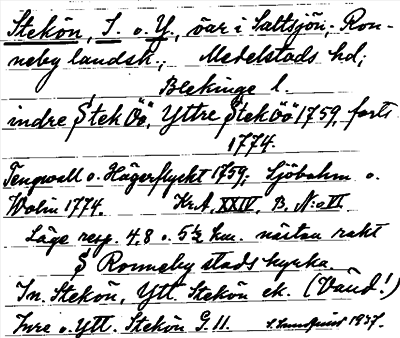 Stekön, I. o. Y., öar i Saltsjön; Ron-
neby landsk.; Medelstads hd;
Blekinge l.
indre Stek Öö, Yttre Stek Öö 1759, forts
1774.
Tengwall o. Hägerflycht 1759; Sjöbohm o.
Wolin 1774. Kr.A. XXIV. B. N:o VI
Läge resp. 4,8 o. 5 1/2 km. nästan rakt
S Ronneby stads kyrka.
In. Stekön, Ytt. Stekön ek. (Vänd!)
Inre o. Ytt. Stekön G. 11. 1937.